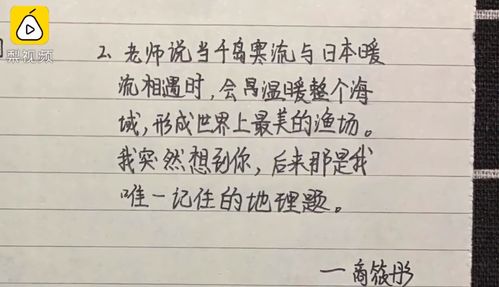 梨视频
2、老师说当千岛寒流与日本暖
流相遇时，会温暖整个海
域，形成世界上最美的渔场。
我突然想到你，后来那是我
唯一记住的地理题。
—商筱彤